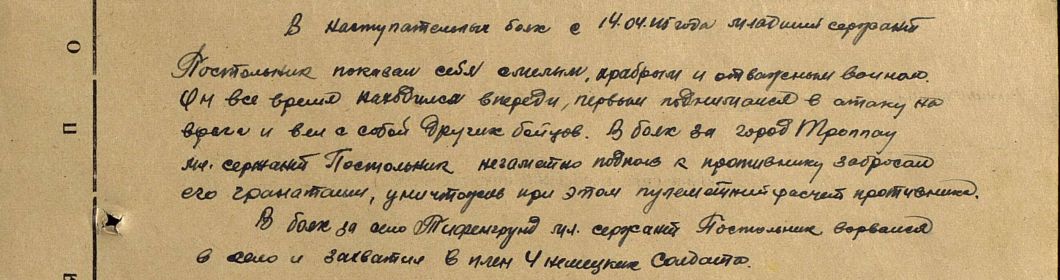 В наступательных боях с 14.04.45 года младший сержант
Постольник показал себя смелым, храбрым и отважным воином.
Он все время находился впереди, первым поднимался в атаку на
врага и вел с собой других бойцов. В боях за город Троппау
мл. сержант Постольник незаметно подполз к противнику забросал
его гранатами, уничтожив при этом пулеметный расчет противника.
В боях за село Тифенгрунд мл. сержант Постольник ворвался
в село и захватил в плен 4 немецких солдата.
О
П